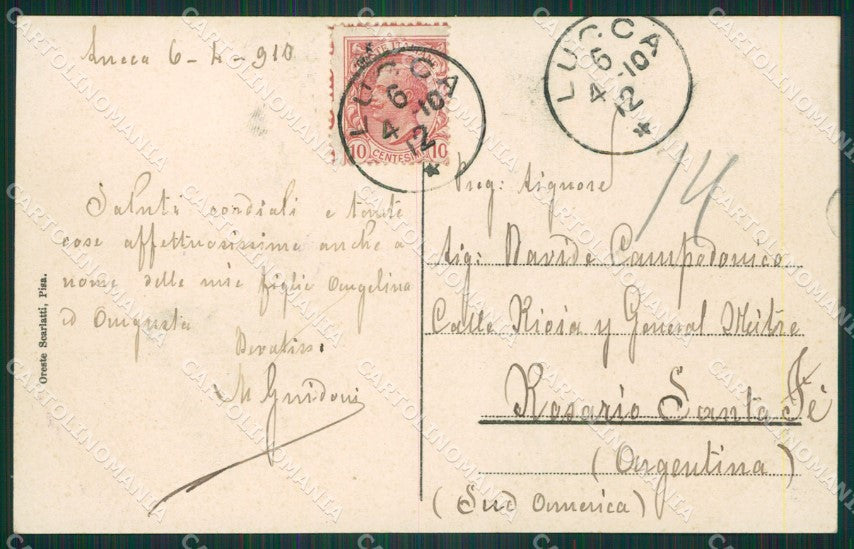 Lucca 6-4-910
Saluti cordiali e tante
cose affettuosissime anche a
nome delle mie figlie Angelina
ed Augusta
Devotiss.
M Guidoni
Oreste Scarlatti, Pisa.
10 CENTESIMI 10
LUCCA
6
4 -10
12
LUCCA
6
4 -10
12
14
Preg: Signore
Sig: Davide Campodonico
Calle Rioja y General Mitre
Rosario Santa Fé
(Argentina)
(Sud America)
CARTOLINOMANIA